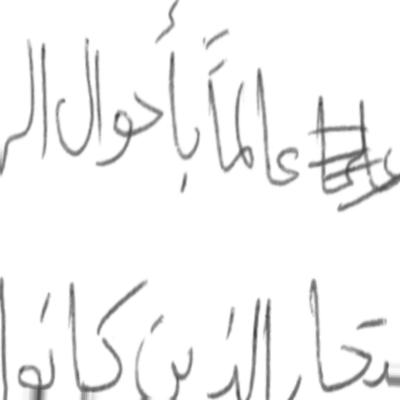 عالماً بأحوال
تجار الذين كانوا